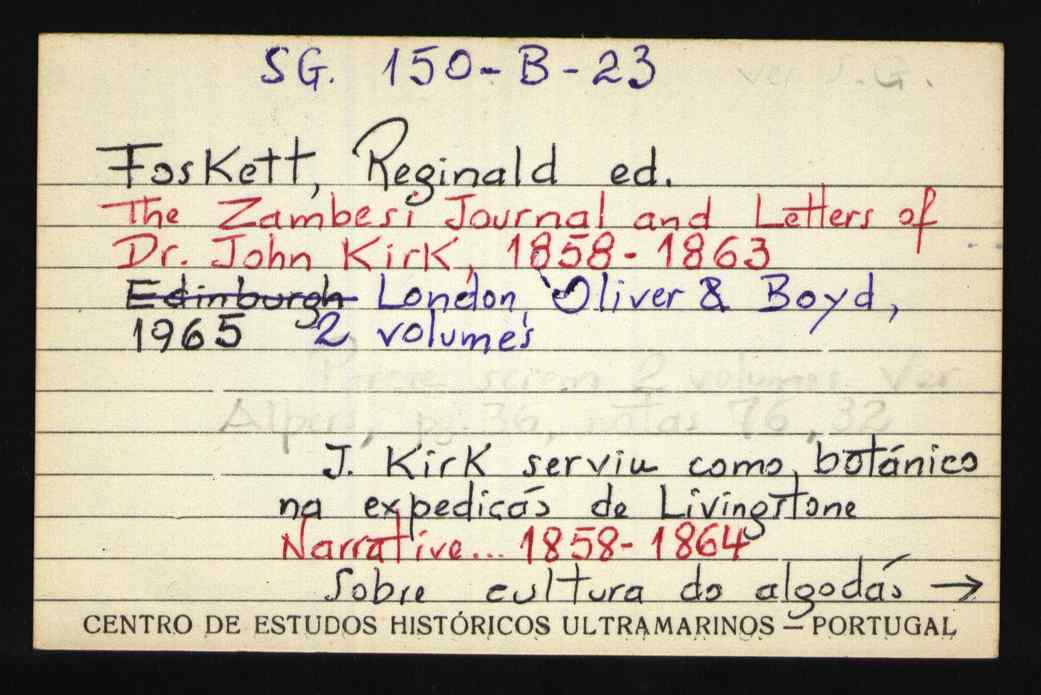 SG. 150-B-23 ver S.G.
Foskett, Reginald ed.
The Zambesi Journal and Letters of
Dr. John Kirk, 1858-1863
Edinburgh London, Oliver & Boyd,
1965 2 volumes
serem 2 volumes. Ver
Alpers, pg. 36, notas 76, 32
J. Kirk serviu como botánico
na expedicás de Livingstone
Narrative... 1858-1864
Sobre cultura do algodás →
CENTRO DE ESTUDOS HISTÓRICOS ULTRAMARINOS — PORTUGAL